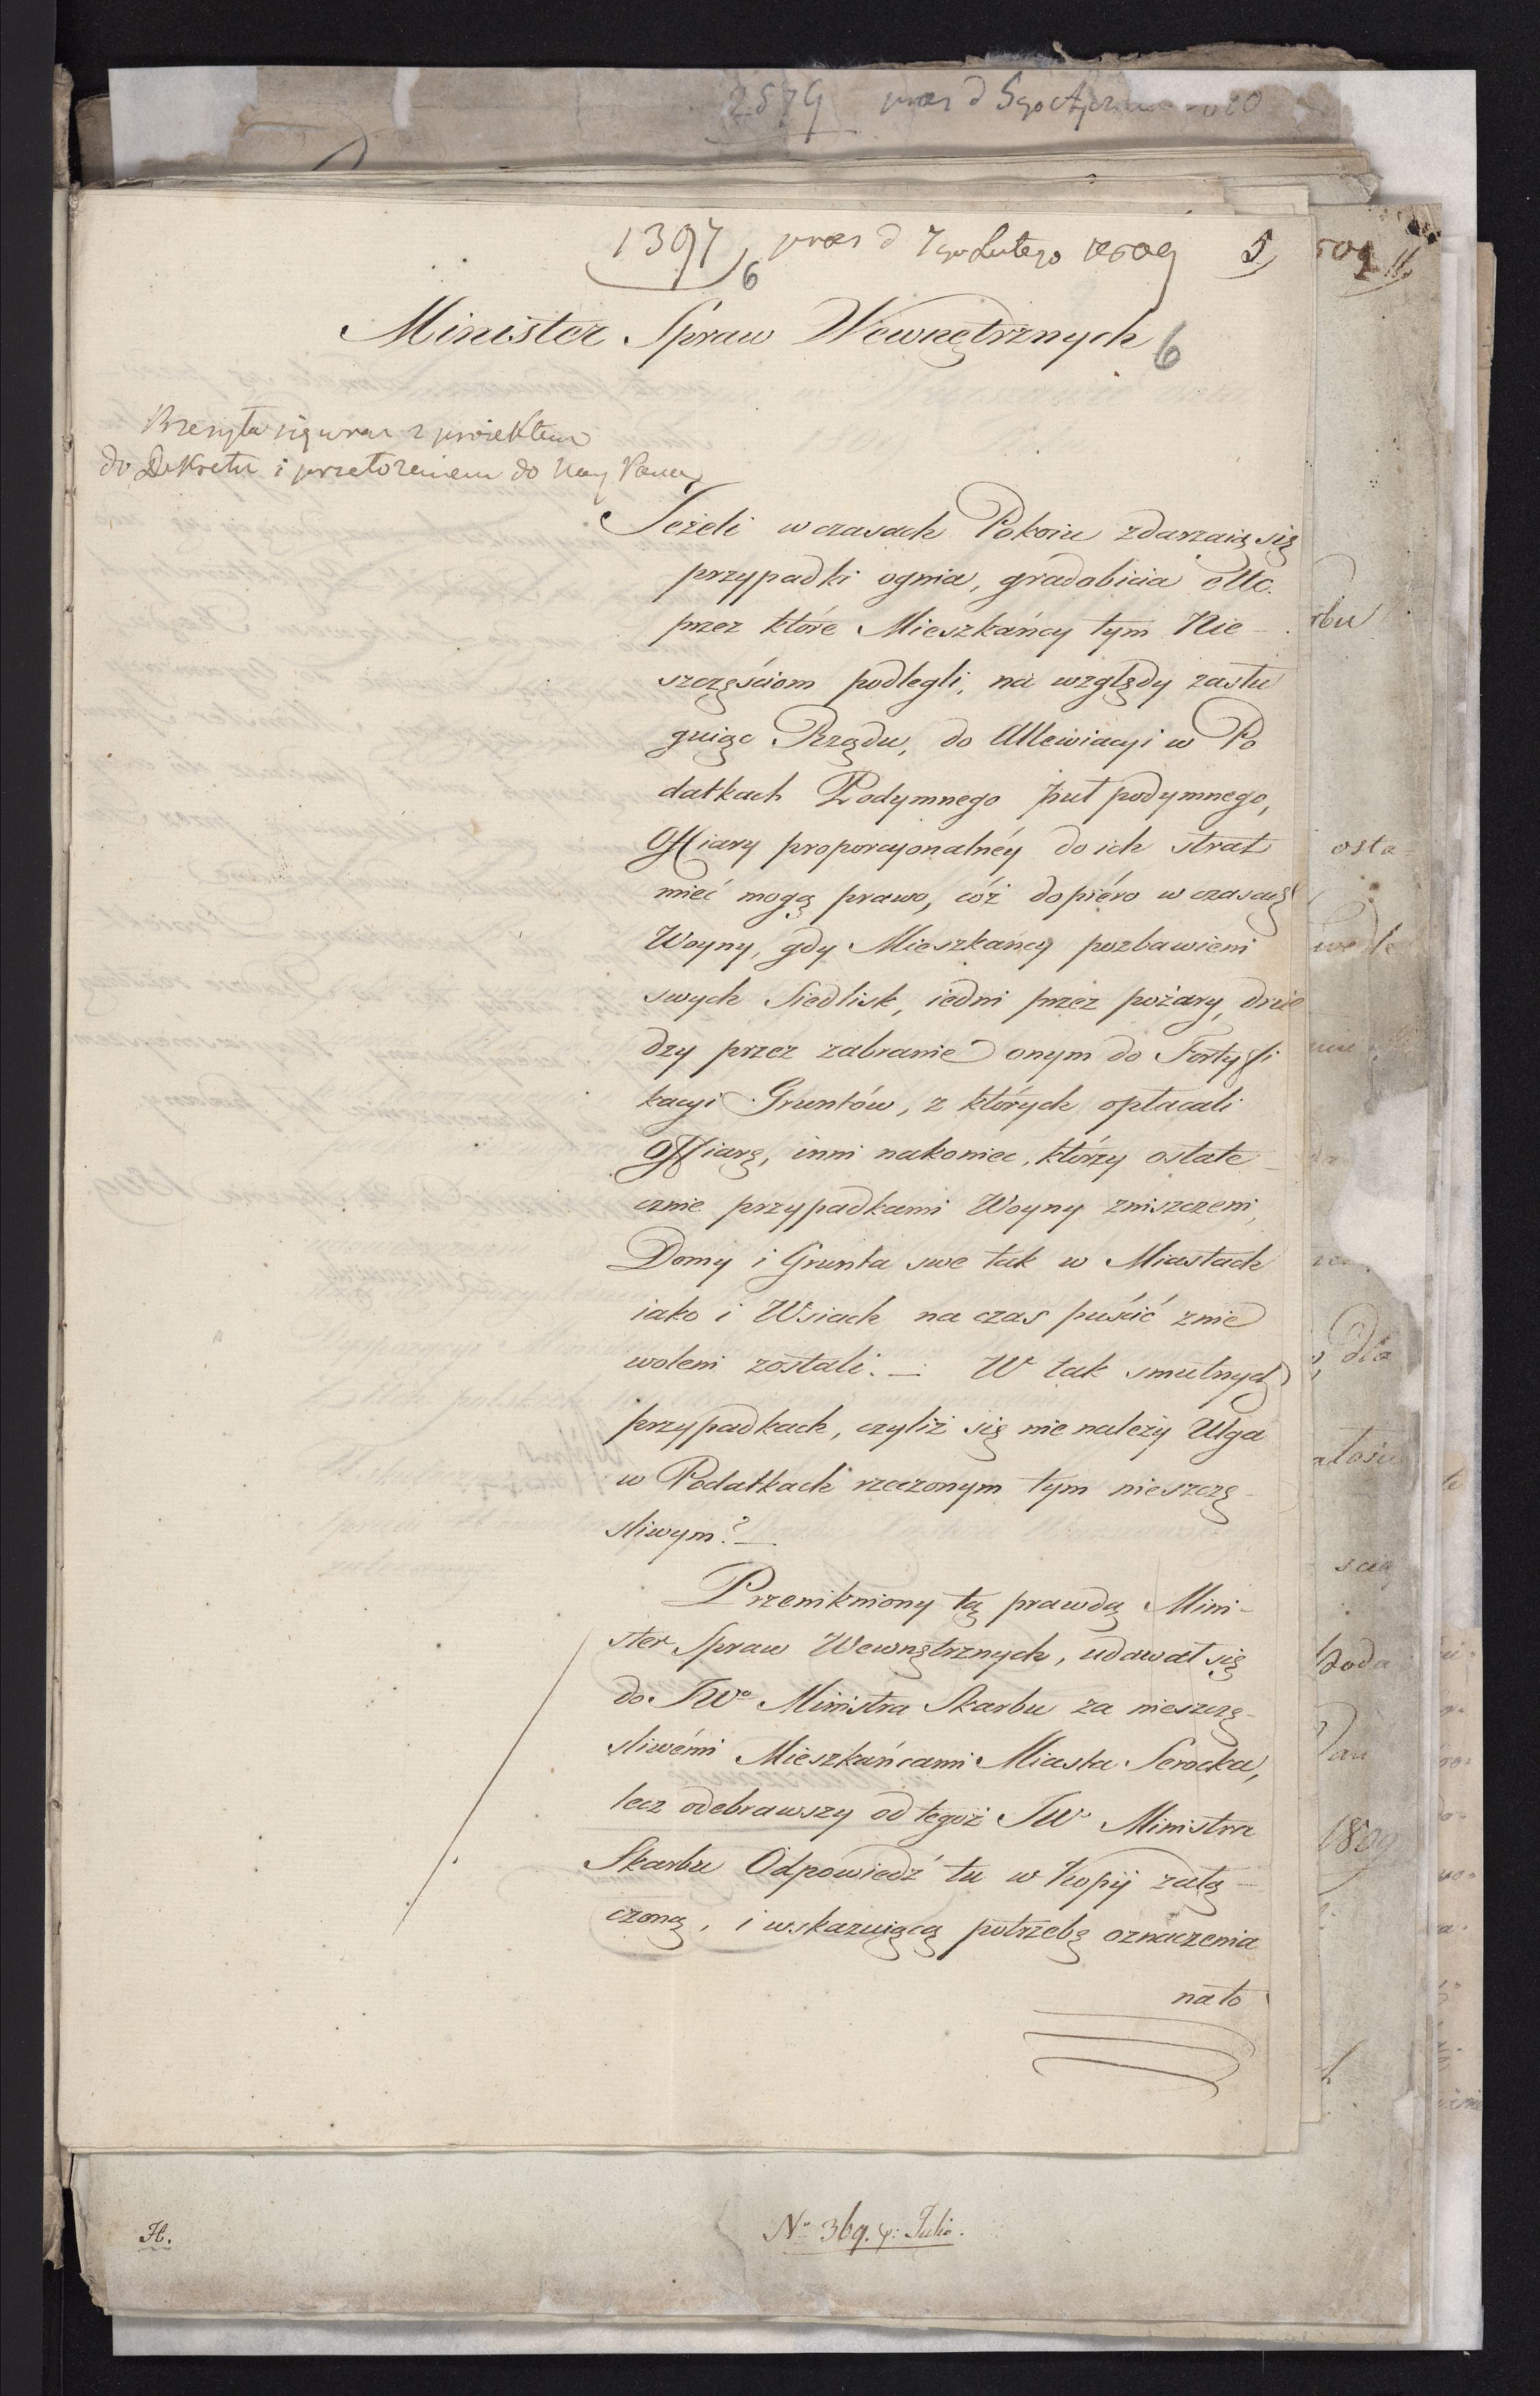 2579 praes d 5go
1397 praes d 7go Lutego 1809 5
6
Minister Spraw Wewnętrznych 6
Przesyła się wraz z proiektem
do Dekretu i przełożeniem do Nay Pana
Jeżeli w czasach Pokoiu zdarzaią się
przypadki ognia, gradobicia ettc.
przez które Mieszkańcy tym Nie-
szczęściom podlegli, na względy zasłu
guiąc Rządu, do Allewiacyi w Po
datkach Podymnego pułpodymnego,
Offiary proporcyonalnéy do ich strat
mieć mogą prawo, cóż dopiéro w czasach
Woyny, gdy Mieszkańcy pozbawieni
swych Siedlisk, iedni przez pożary, dru
dzy przez zabranie onym do Fortyfi
kacyi Gruntów, z których opłacali
Offiarę, inni nakoniec, którzy ostate_
cznie przypadkami Woyny zniszczeni,
Domy i Grunta swe tak w Miastach
iako i Wsiach na czas puścić znie
woleni zostali. — W tak smutnych
przypadkach, czyliż się nie należy Ulga
w Podatkach rzeczonym tym nieszczę-
śliwym? —
Przenikniony tą prawdą Mini-
ster Spraw Wewnętrznych, udawał się
do JWo Ministra Skarbu za nieszczę-
śliwémi Mieszkańcami Miasta Serocka,
lecz odebrawszy od tegoż JWo Ministra
Skarbu Odpowiedź tu w Kopij załą-
czoną, i wskazuiącą potrzebę oznaczenia
na to
rbu
osta
Dla
poda
1809
H.
No 369. Julio.